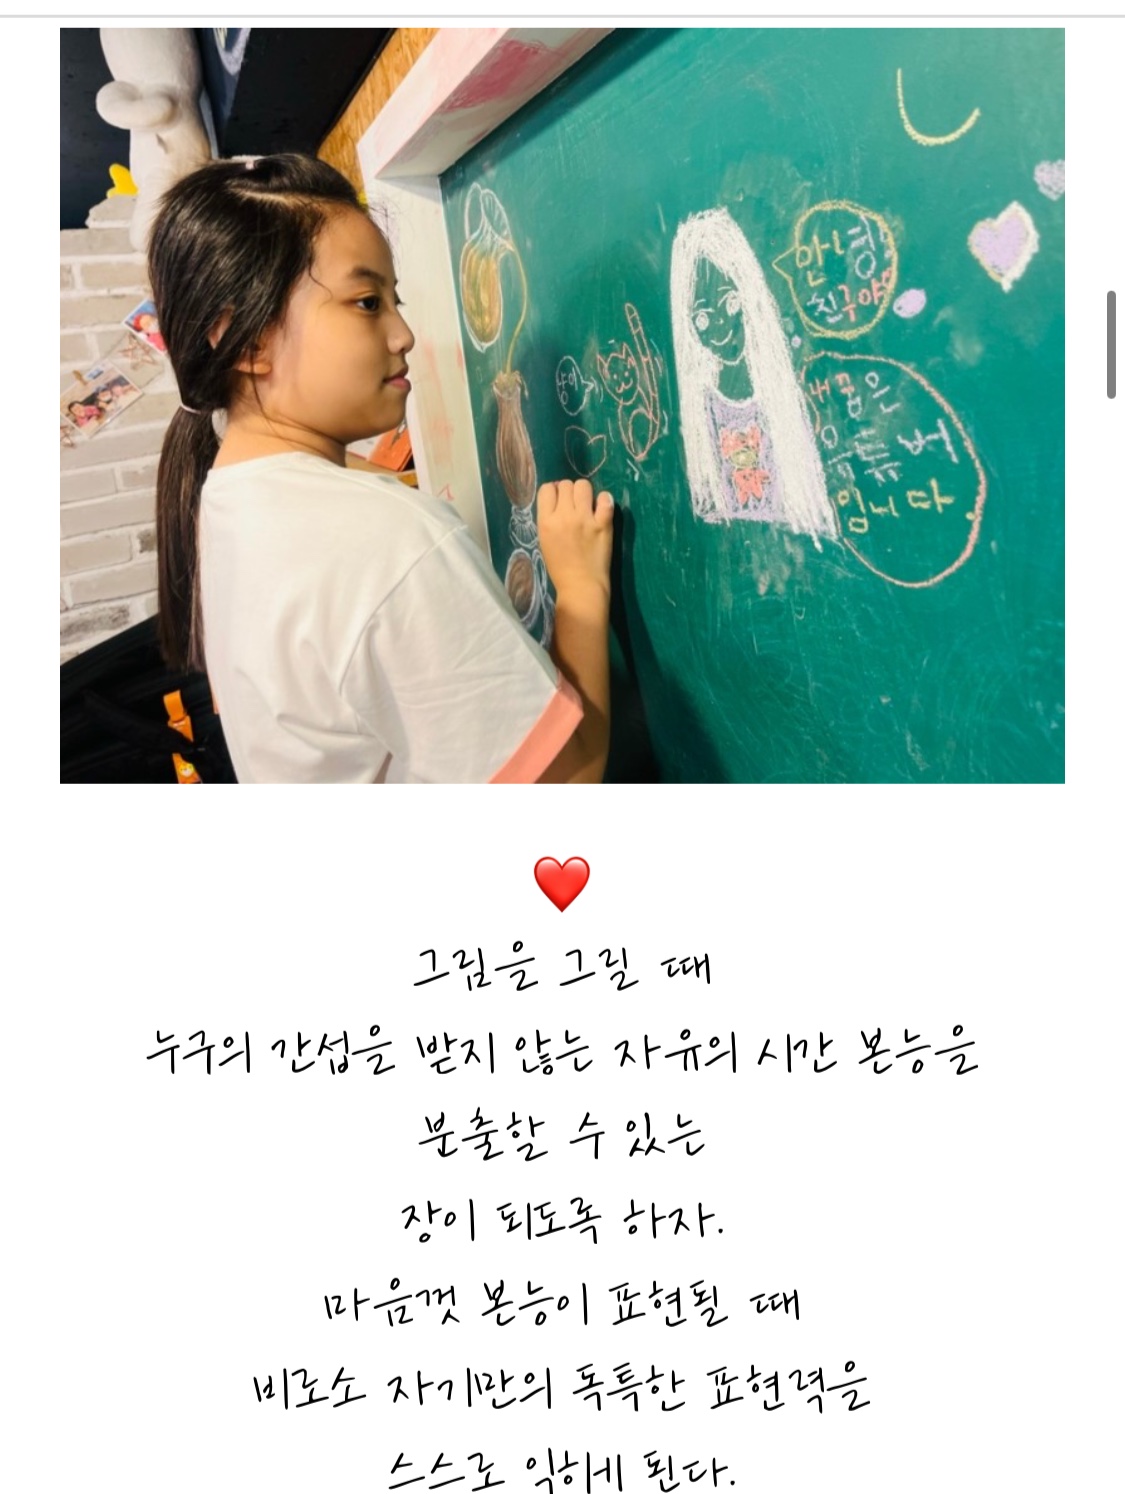 안녕
친구야
냥이
내 꿈은
유튜버
입니다.
그림을 그릴 때
누구의 간섭을 받지 않는 자유의 시간 본능을
분출할 수 있는
장이 되도록 하자.
마음껏 본능이 표현될 때
비로소 자기만의 독특한 표현력을
스스로 익히게 된다.